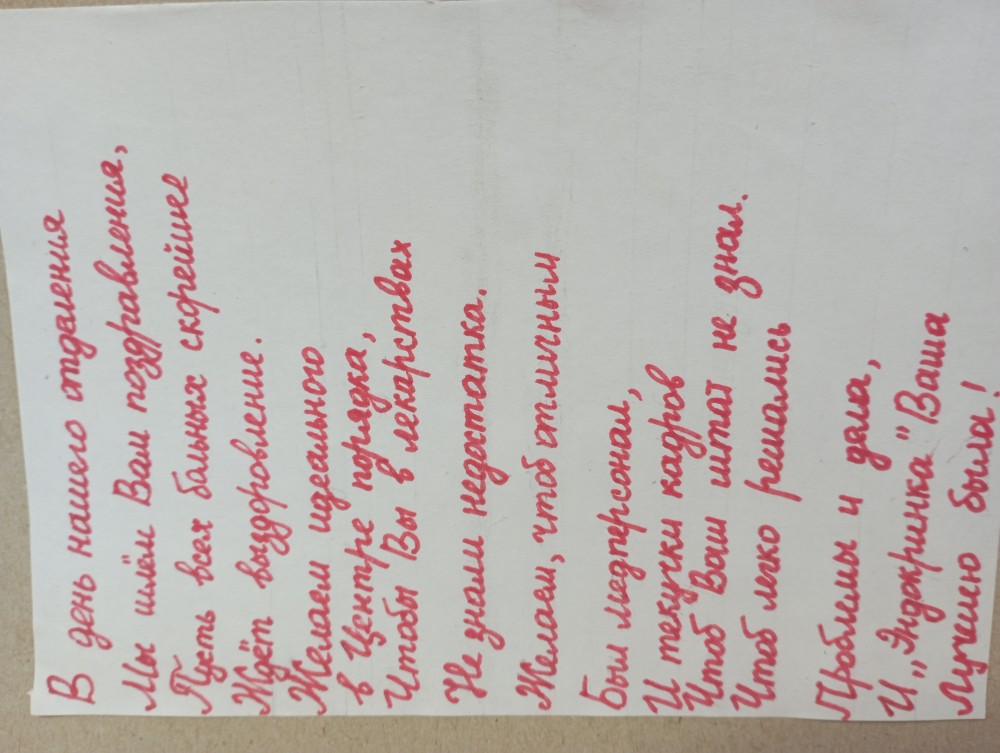 В день нашего отделения
Мы шлём Вам поздравления,
Пусть всех больных скорейшее
Ждёт выздоровление.
Желаем идеального
в Центре порядка,
Чтобы Вы в лекарствах
Не знали недостатка.
Желаем, чтоб отличным
Был медперсонал,
И текучки кадров
Чтоб Ваш штат не знал.
Чтоб легко решались
Проблемы и дела,
И „Энджринка" Ваша
Лучшею была!